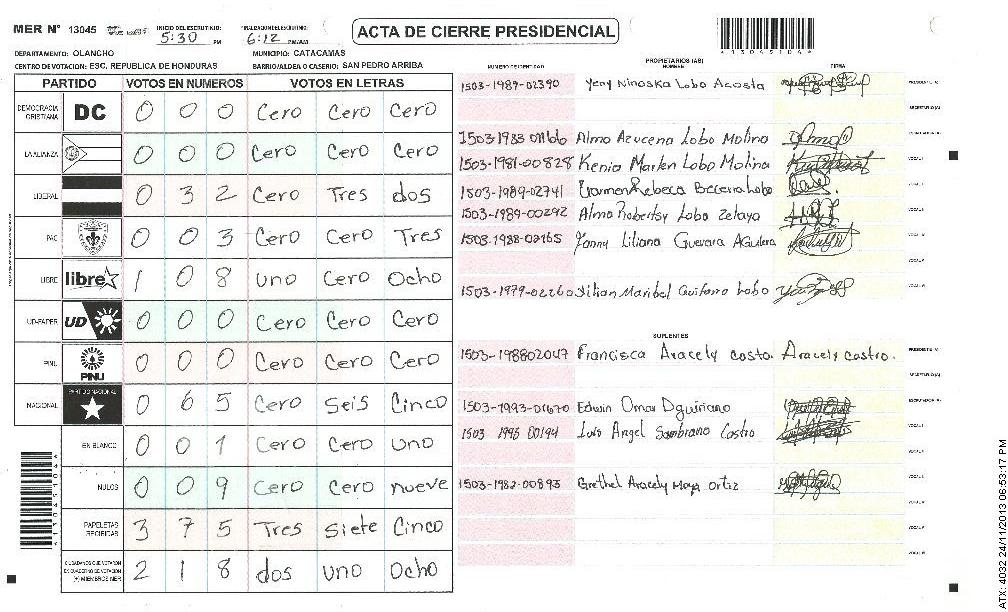 MER Nº 13045 INICIO DEL ESCRUTINIO: 5:30 PM FINALIZACION ESCRUTINIO: 6:12 PM/AM
ACTA DE CIERRE PRESIDENCIAL
DEPARTAMENTO: OLANCHO MUNICIPIO: CATACAMAS
CENTRO DE VOTACION: ESC. REPUBLICA DE HONDURAS BARRIO/ALDEA O CASERIO: SAN PEDRO ARRIBA
PARTIDO VOTOS EN NUMEROS VOTOS EN LETRAS
DEMOCRACIA CRISTIANA DC 0 0 0 Cero Cero Cero
LA ALIANZA 0 0 0 Cero Cero Cero
LIBERAL 0 3 2 Cero Tres dos
PAC 0 0 3 Cero Cero Tres
LIBRE libre 1 0 8 uno Cero Ocho
UD-FAPER UD 0 0 0 Cero Cero Cero
PINU PINU 0 0 0 Cero Cero Cero
NACIONAL PARTIDO NACIONAL 0 6 5 Cero Seis Cinco
EN BLANCO 0 0 1 Cero Cero uno
NULOS 0 0 9 Cero Cero nueve
PAPELETAS RECIBIDAS 3 7 5 Tres Siete Cinco
CIUDADANOS QUE VOTARON EN CUADERNO DE VOTACION (+) MIEMBROS MER 2 1 8 dos uno Ocho
PROPIETARIOS (AS)
NUMERO DE IDENTIDAD NOMBRE FIRMA
1503-1987-02390 Yeny Ninoska Lobo Acosta
1503-1983 01166 Alma Azucena Lobo Molina
1503-1981-00828 Kenia Marlen Lobo Molina
1503-1989-02741 Carmen Rebeca Becerra Lobo
1503-1989-00292 Alma Robertsy Lobo Zelaya
1503-1988-02165 Yanny Liliana Guevara Aguilera
1503-1979-02260 Jilian Maribel Guifarro Lobo
SUPLENTES
1503-198802047 Francisca Aracely Costo. Aracely Castro.
1503-1993-01670 Edwin Omar
1503 1995 00194 Luis Angel Sambrano Castro
1503-1982-00893 Grethel Aracely Moya Ortiz
ATX: 4032 24/11/2013 06:53:17 PM